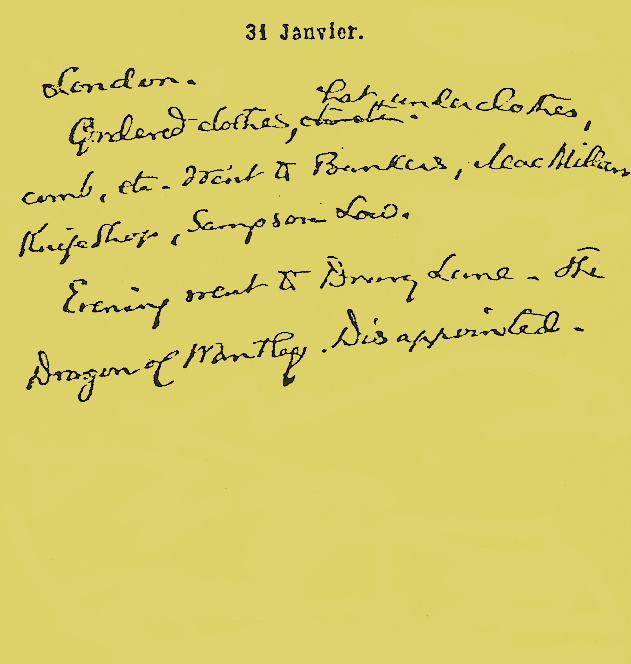 31 Janvier.
London.
Ordered clothes, hat, underclothes,
comb, etc. Went to Bankers, MacMillans
Knife Shop, Sampson Low.
Evening went to Drury Lane - The
Dragon of Wantley. Disappointed.